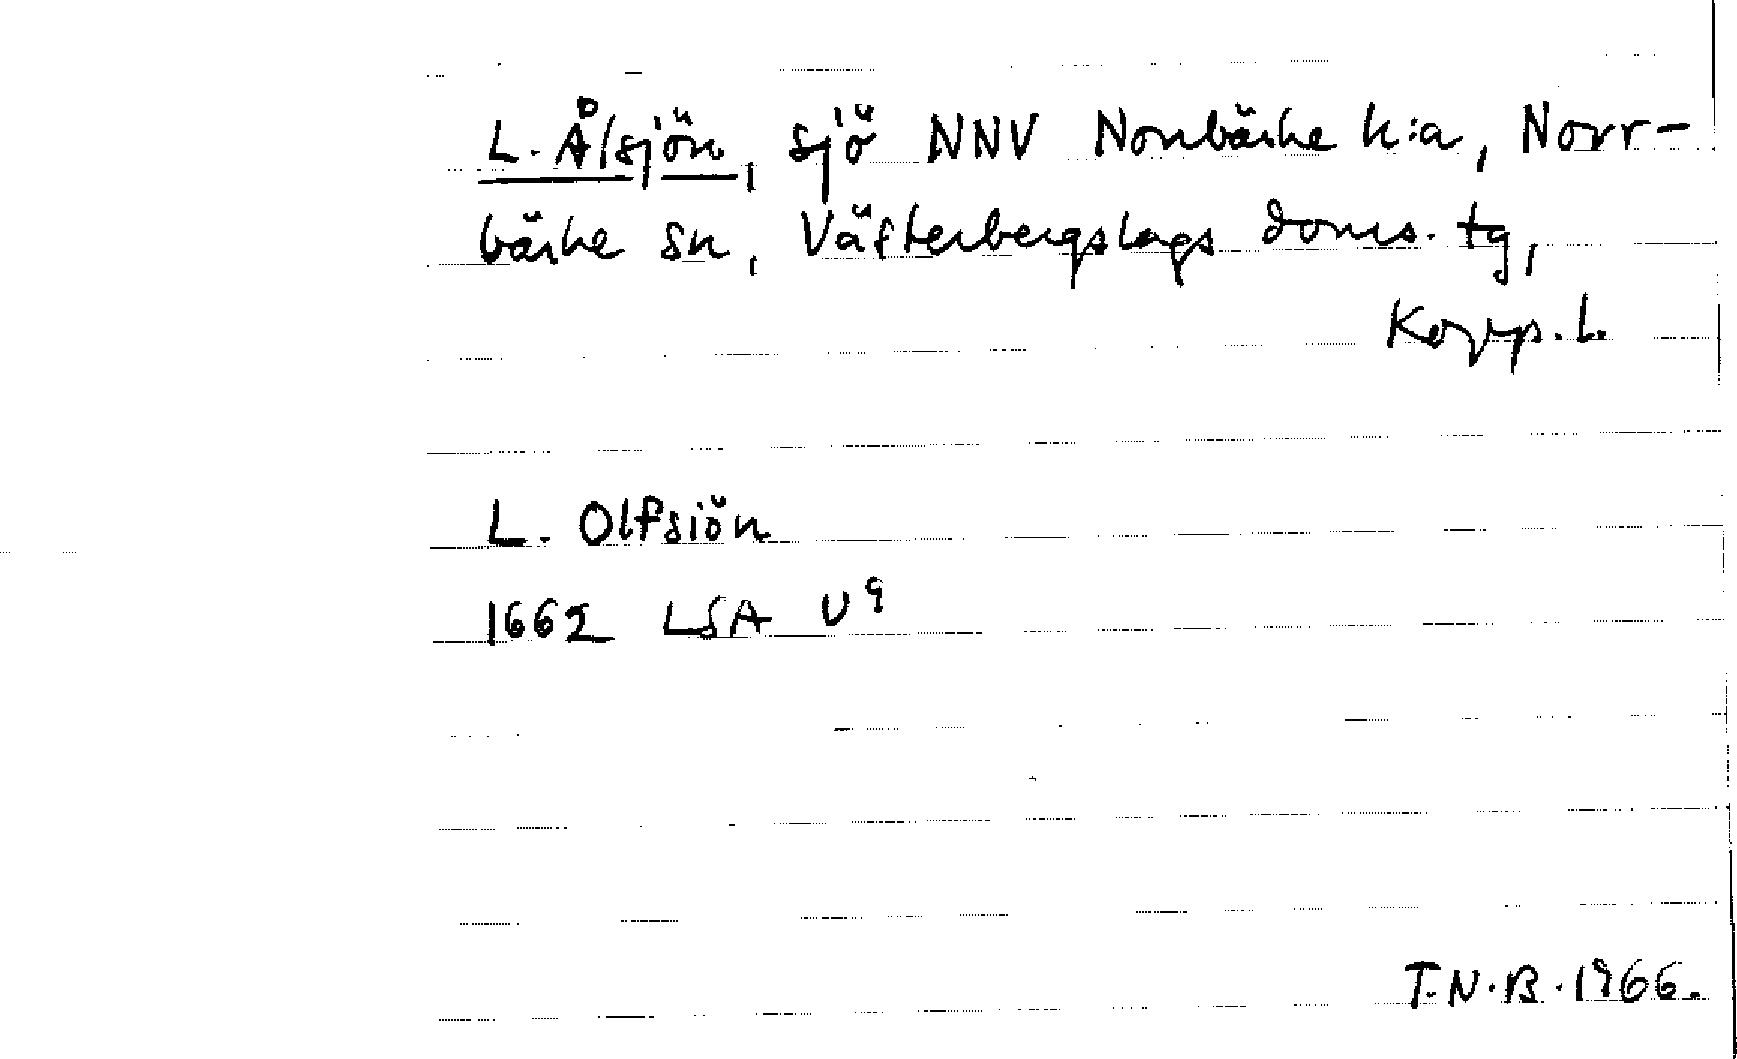 L. Ålsjön, sjö NNV Norrbärke k:a, Norr-
bärke sn, Västerbergslags doms. tg,
Kopp. L.
L. Olfsiön
1662 LSA U9
T.N.B. 1966.